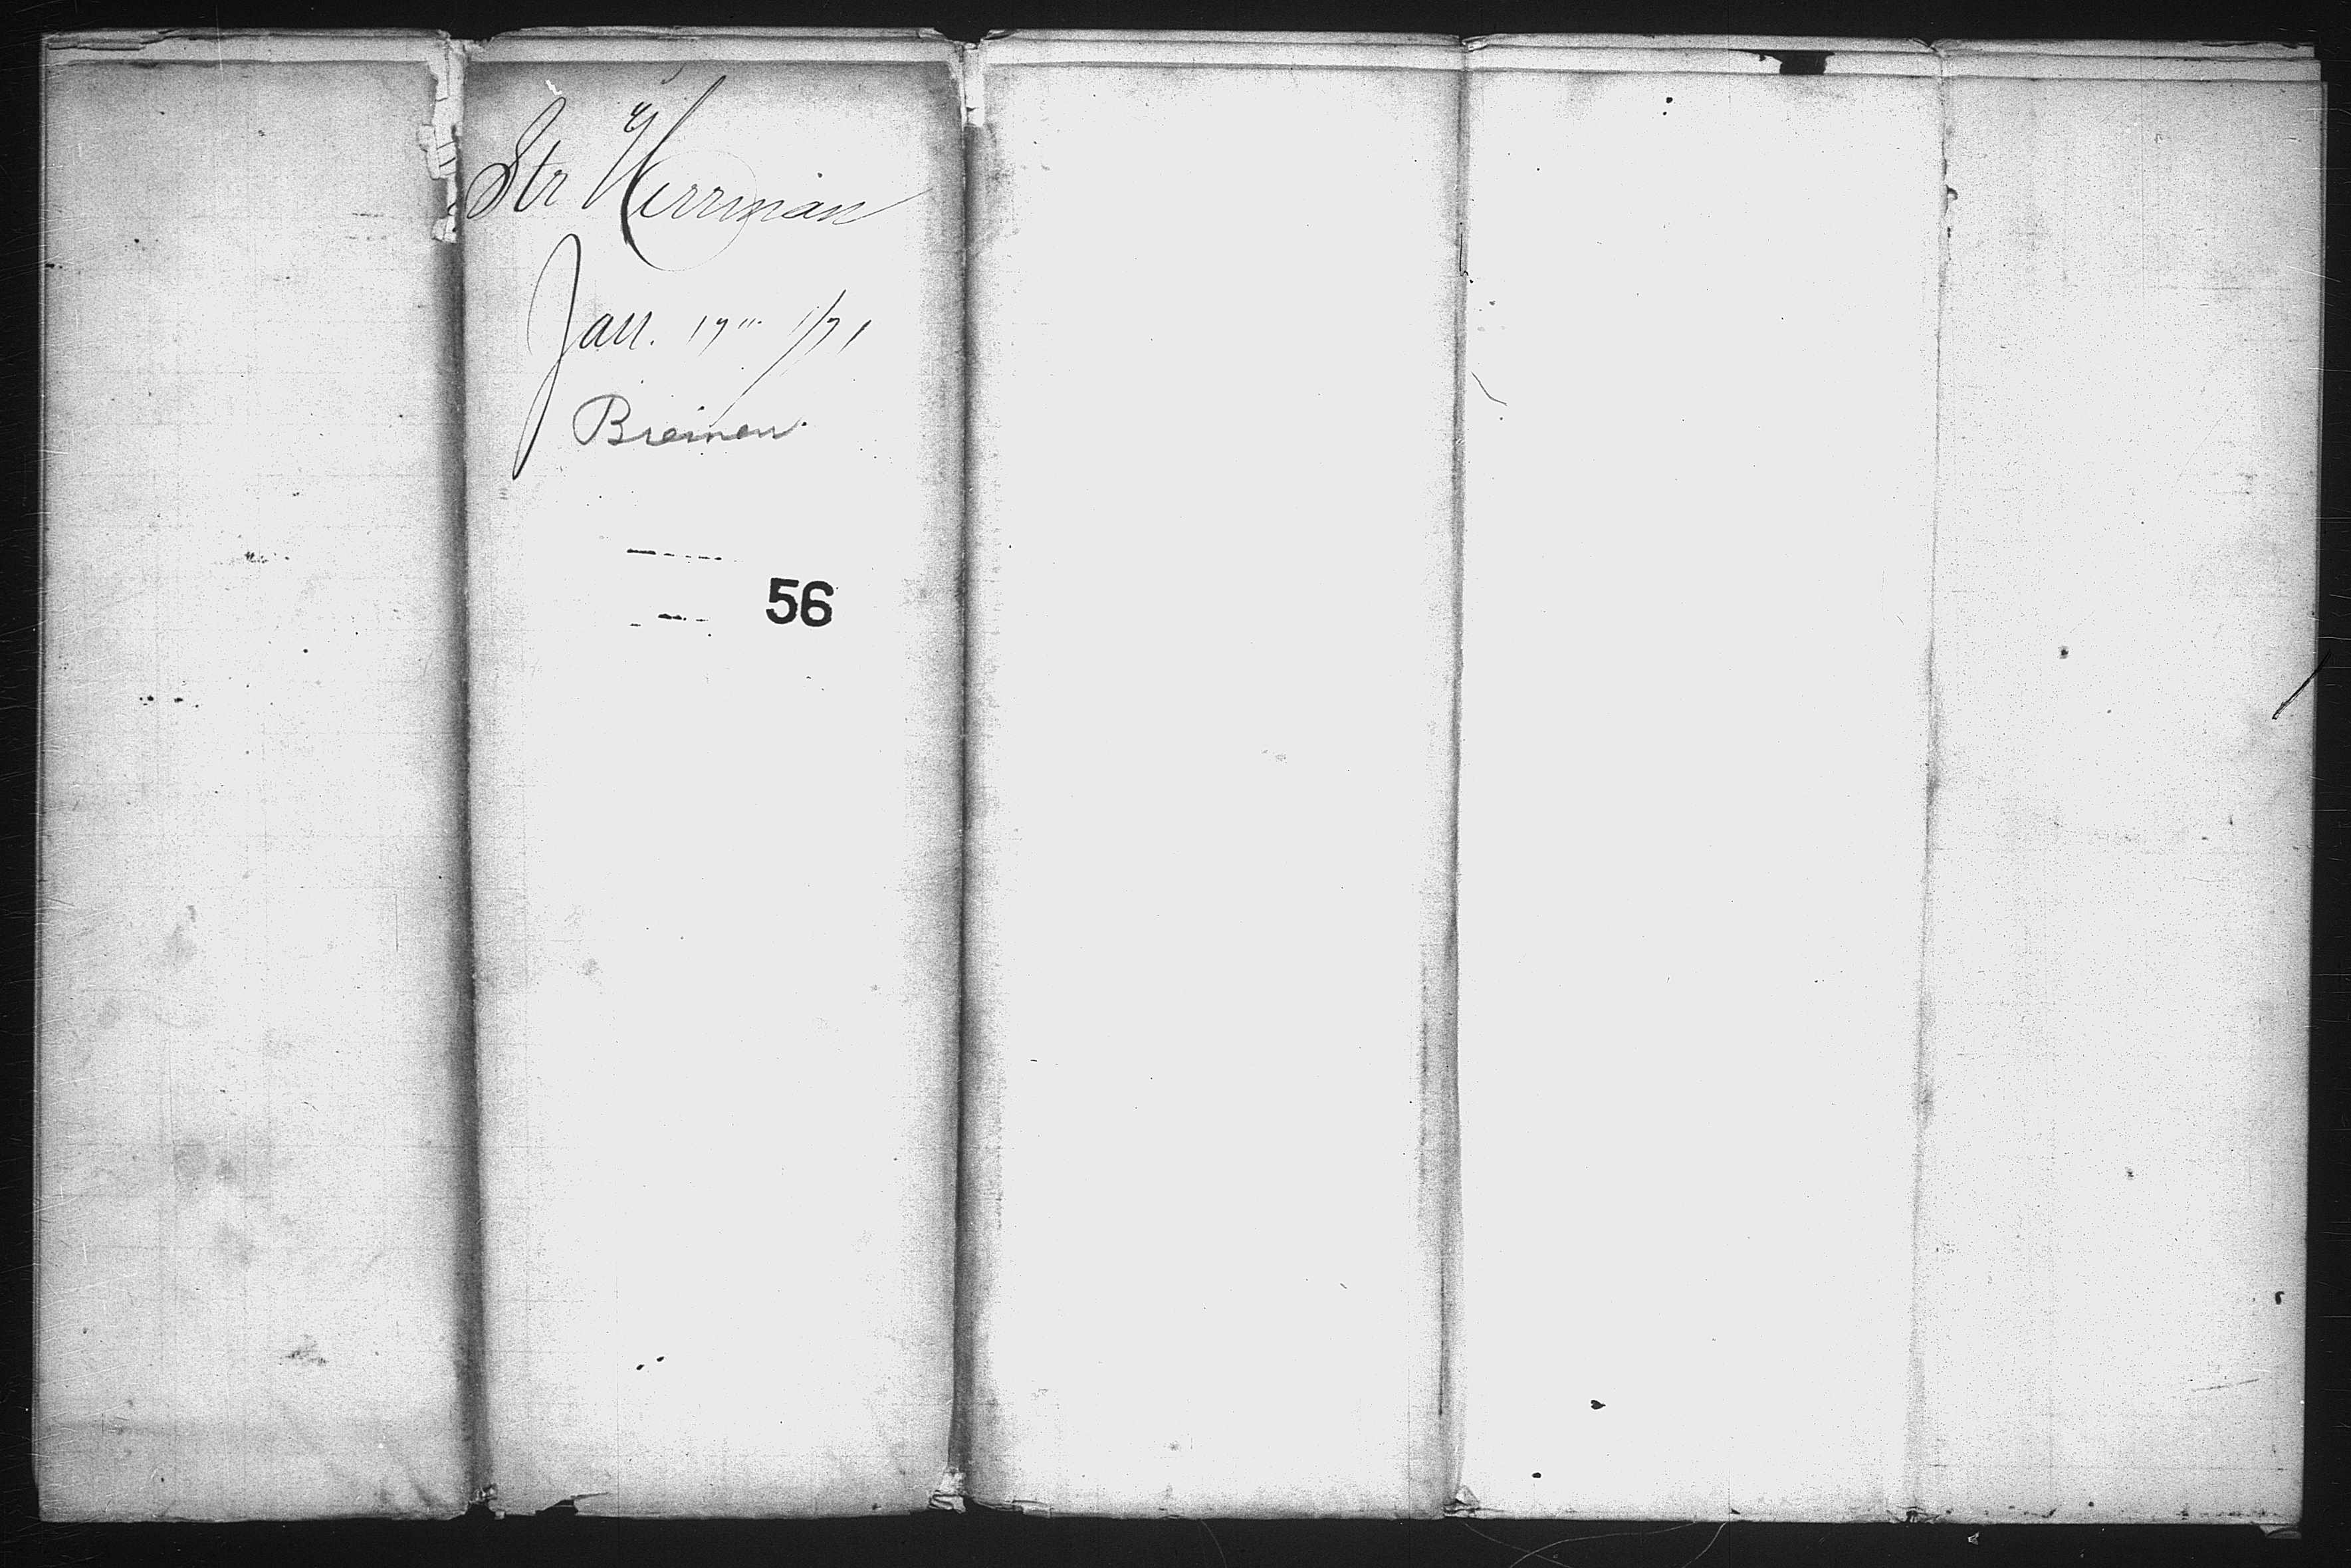 Str Herrman
Jan. 17" 1/71
Bremen.
56